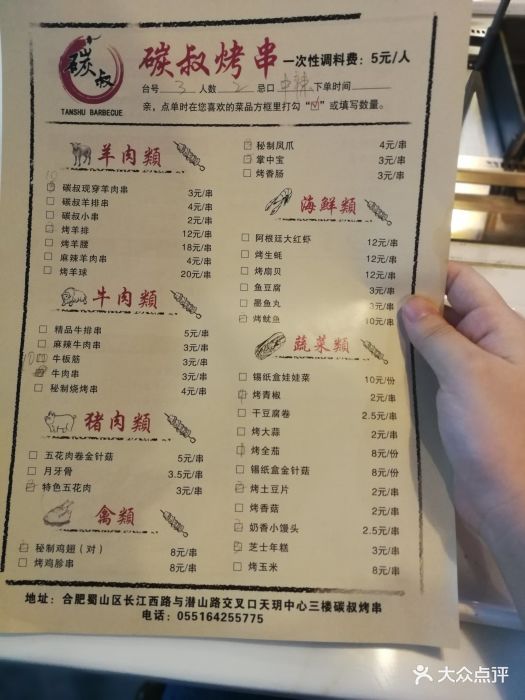 碳叔
TANSHU BARBECUE
碳叔烤串 一次性调料费：5元/人
台号 3 人数 2 总口 中辣 下单时间
亲，点单时在您喜欢的菜品方框里打勾“☑”或填写数量。
羊肉類
10 碳叔现穿羊肉串 3元/串
碳叔羊排串 4元/串
碳叔小串 2元/串
烤羊排 12元/串
烤羊腰 18元/串
麻辣羊肉串 4元/串
烤羊球 20元/串
牛肉類
精品牛排串 5元/串
麻辣牛肉串 3元/串
10 牛板筋 3元/串
牛肉串 3元/串
秘制烧烤串 4元/串
猪肉類
五花肉卷金针菇 5元/串
月牙骨 3.5元/串
特色五花肉 3元/串
禽類
秘制鸡翅（对） 8元/串
烤鸡胗串 8元/串
秘制凤爪 4元/串
掌中宝 3元/串
烤香肠 3元/串
海鮮類
阿根廷大红虾 12元/串
烤生蚝 12元/串
烤扇贝 12元/串
鱼豆腐 3元/串
墨鱼丸 3元/串
烤鱿鱼 10元/串
蔬菜類
锡纸盒娃娃菜 10元/份
烤青椒 2元/串
干豆腐卷 2.5元/串
烤大蒜 2元/串
烤全茄 8元/份
锡纸盒金针菇 8元/份
烤土豆片 2元/串
烤香菇 2元/串
奶香小馒头 2.5元/串
芝士年糕 3元/串
烤玉米 8元/串
地址：合肥蜀山区长江西路与潜山路交叉口天玥中心三楼碳叔烤串
电话：055164255775
大众点评